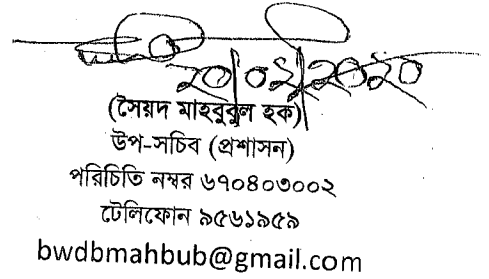 ২০/০২/২০২০
(সৈয়দ মাহবুবুল হক)
উপ-সচিব (প্রশাসন)
পরিচিতি নম্বর ৬৭০৪০৩০০২
টেলিফোন ৯৫৬১৯৫৯
bwdbmahbub@gmail.com